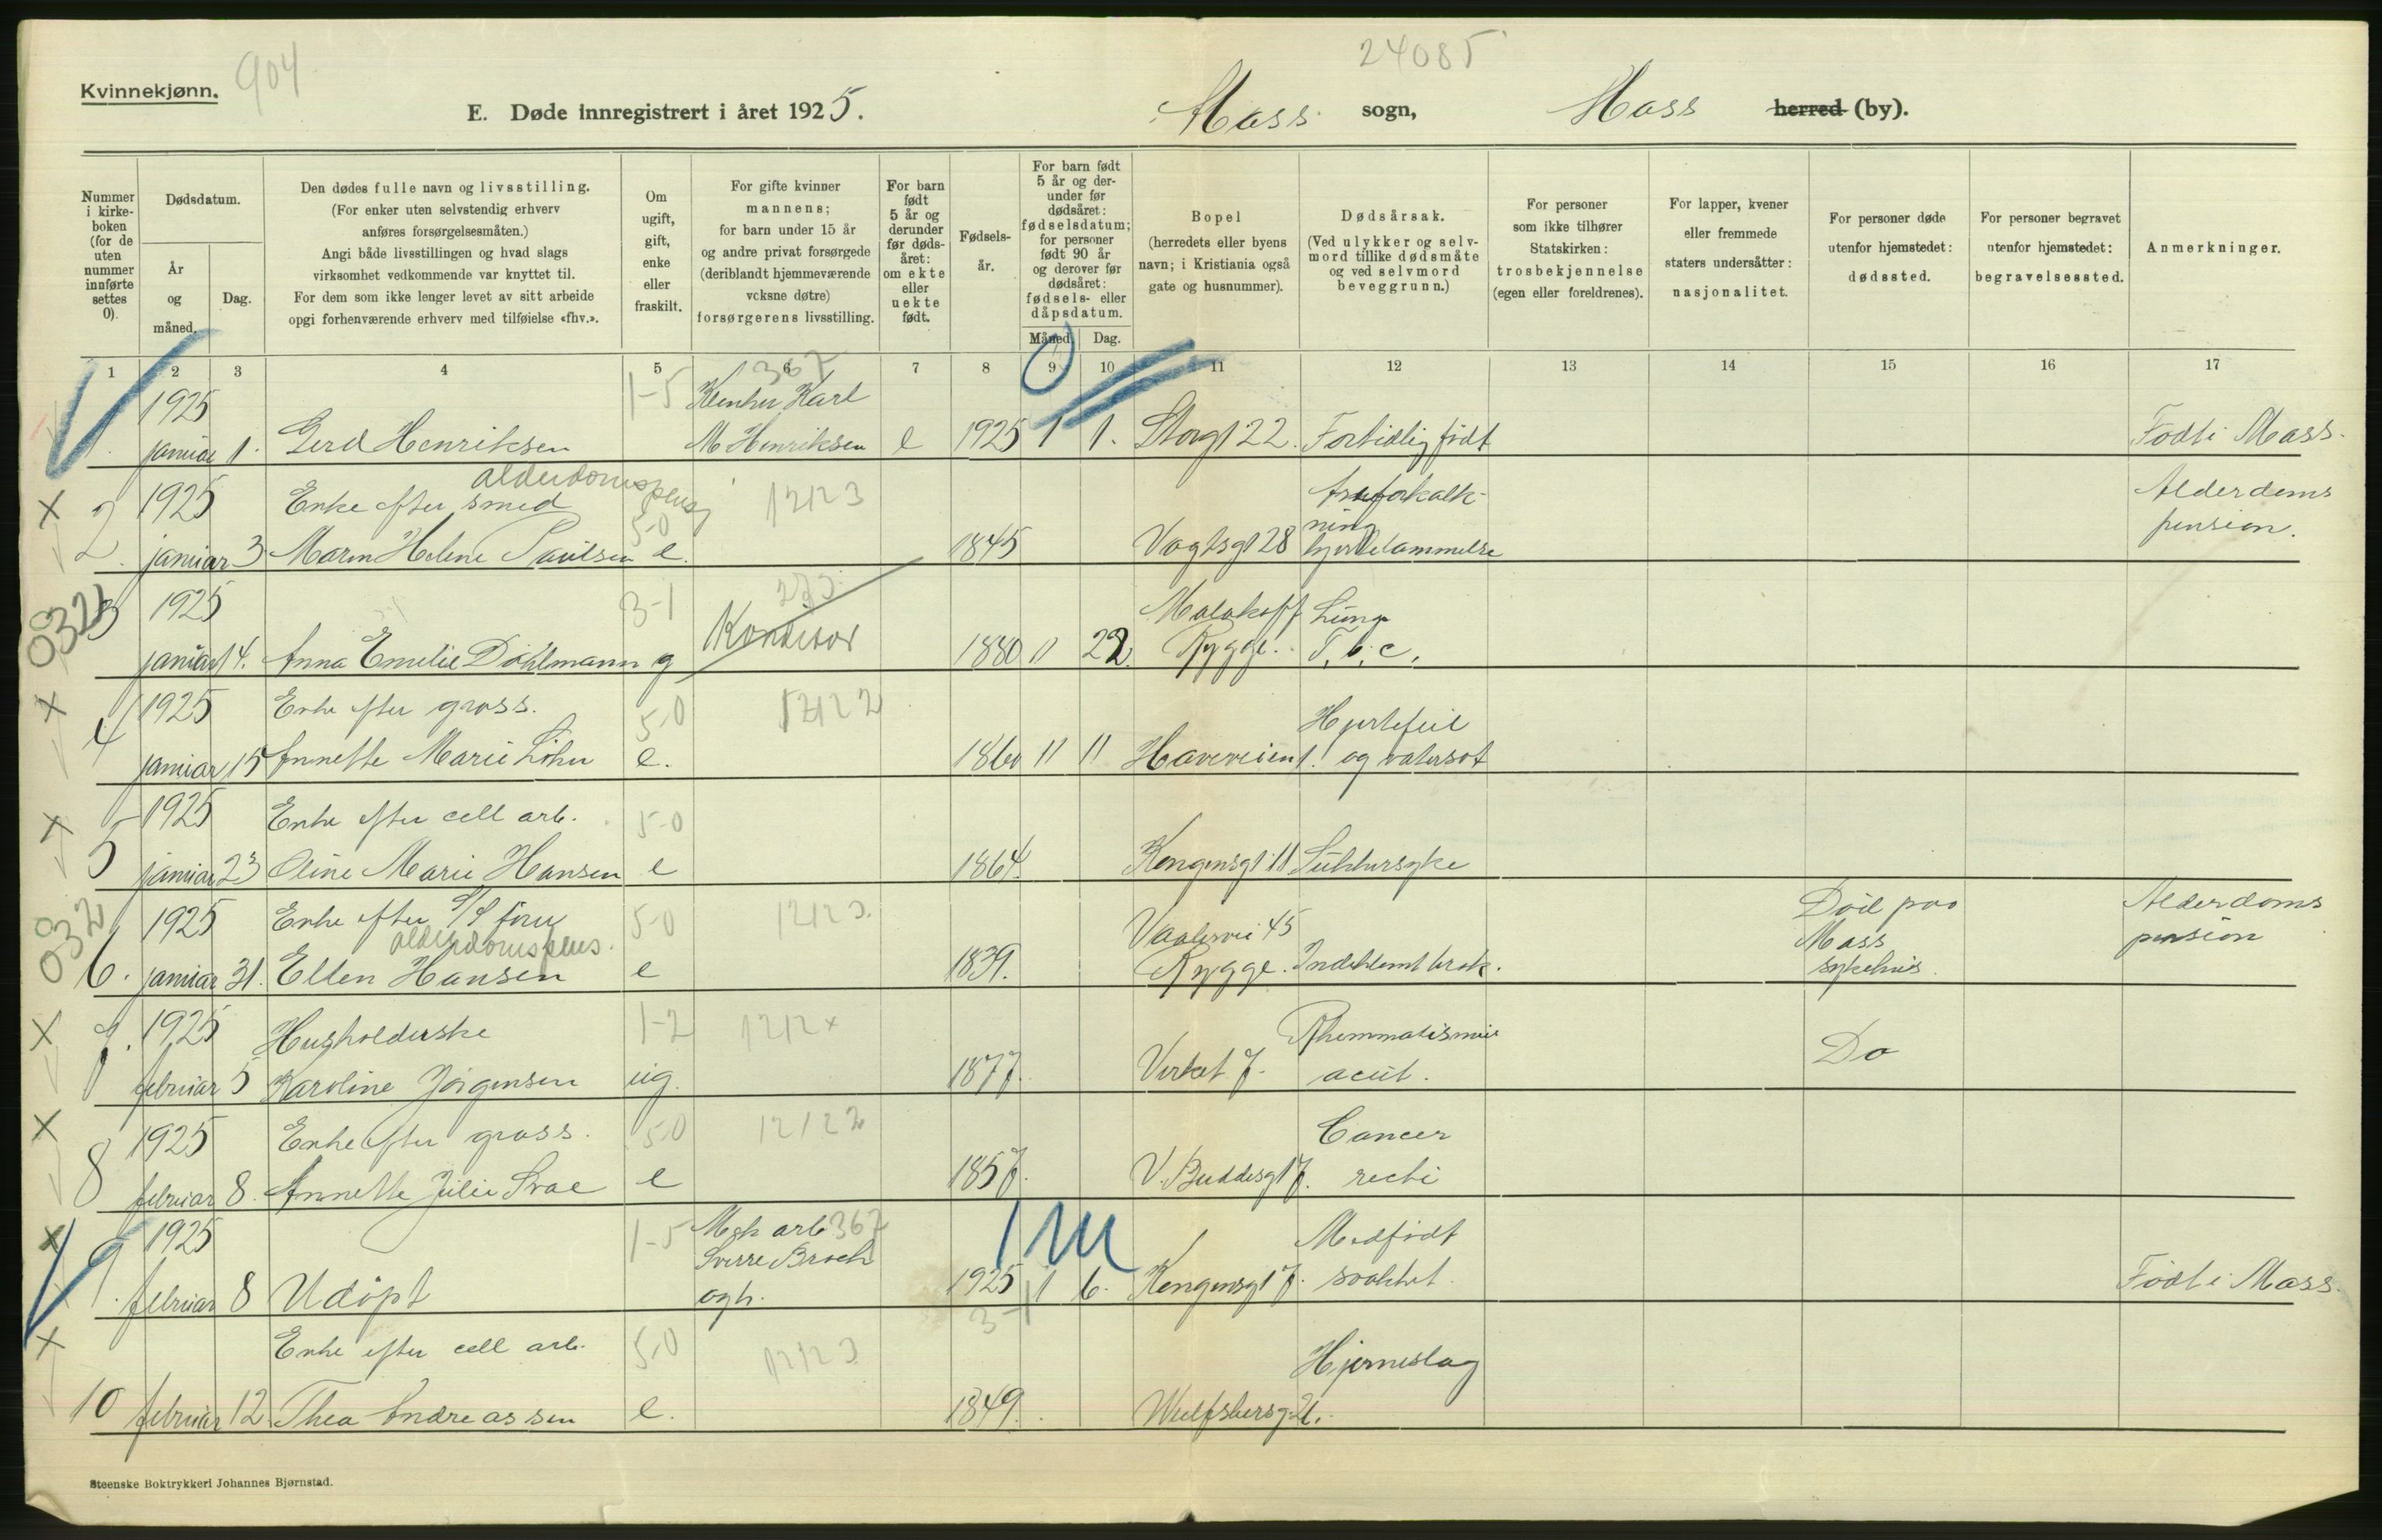 Kvinnekjønn.
904
24085
E. Døde innregistrert i året 1925.
Moss sogn,
Moss herred (by).
Nummer i kirkeboken (for de uten nummer innførte settes 0).
Dødsdatum.
År og måned.
Dag.
Den dødes fulle navn og livsstilling.
(For enker uten selvstendig erhverv
anføres forsørgelsesmåten.)
Angi både livsstillingen og hvad slags
virksomhet vedkommende var knyttet til.
For dem som ikke lenger levet av sitt arbeide
opgi forhenværende erhverv med tilføielse «fhv.».
Om
ugift,
gift,
enke
eller
fraskilt.
For gifte kvinner
mannens;
for barn under 15 år
og andre privat forsørgede
(deriblandt hjemmeværende
voksne døtre)
forsørgerens livsstilling.
For barn
født
5 år og
derunder
før døds-
året:
om ekte
eller
uekte
født.
Fødsels-
år.
For barn født
5 år og der-
under før
dødsåret:
fødselsdatum;
for personer
født 90 år
og derover før
dødsåret:
fødsels- eller
dåpsdatum.
Måned
Dag.
Bopel
(herredets eller byens
navn; i Kristiania også
gate og husnummer).
Dødsårsak.
(Ved ulykker og selv-
mord tillike dødsmåte
og ved selvmord
beveggrunn.)
For personer
som ikke tilhører
Statskirken:
trosbekjennelse
(egen eller foreldrenes).
For lapper, kvener
eller fremmede
staters undersåtter:
nasjonalitet.
For personer døde
utenfor hjemstedet:
dødssted.
For personer begravet
utenfor hjemstedet:
begravelsessted.
Anmerkninger.
1 2 3 4 5 6 7 8 9 10 11 12 13 14 15 16 17
1925 1-5 367 Karl
1. januar 1. Gerd Henriksen M Henriksen e 1925 1 1. Storgt 22. Fortidlig født Født i Moss.
2 1925 Enke efter smed alderdomspens 5-0 12123 Alderdoms
januar 3 Maren Helene Paulsen e. 1845 Vogtsgt 28 hjertelammelse pension.
0323 3 1925 3-1 Konditor Malakoff Lunge
januar 14. Anna Emilie Dahlmann g 1880 11 22. Rygge. T.b.c.
4 1925 Enke efter gross. 5-0 12122 Hjertefeil
januar 15 Annette Marie Löhn e. 1860 11 11 Haveveien 1. og vatersot
5 1925 Enke efter cell arb. 5-0
januar 23 Oline Marie Hansen e 1864. Kongensgt 11 Sukkersyke
032 1925 Enke efter S/S fører 5-0 1212 Vaalervei 45 Død paa Alderdoms
alderdomspens. Moss pension
6. januar 31. Ellen Hansen e 1839. Rygge. Indeklemt brok. sykehus.
7. 1925 Husholderske 1-2 1212x Rheumatismus Do
februar 5 Karoline Jørgensen ug. 1877. Verket 7. acut.
8 1925 Enke efter gross. 5-0 12122 Cancer
februar 8. Annette Julie Svae e 1857. V. Buddesgt 7. recti
1925 1-5 Mek arb 367 Medfødt
Sverre Broch
9. februar 8 Udøpt ogh. 1925 1 6. Kongensgt 7. svakhet. Født i Moss.
Enke efter cell arb. 5-0 Hjerneslag
10 februar 12. Thea Andreassen e. 1849. Wulfsbergg 21.
Steenske Boktrykkeri Johannes Bjørnstad.